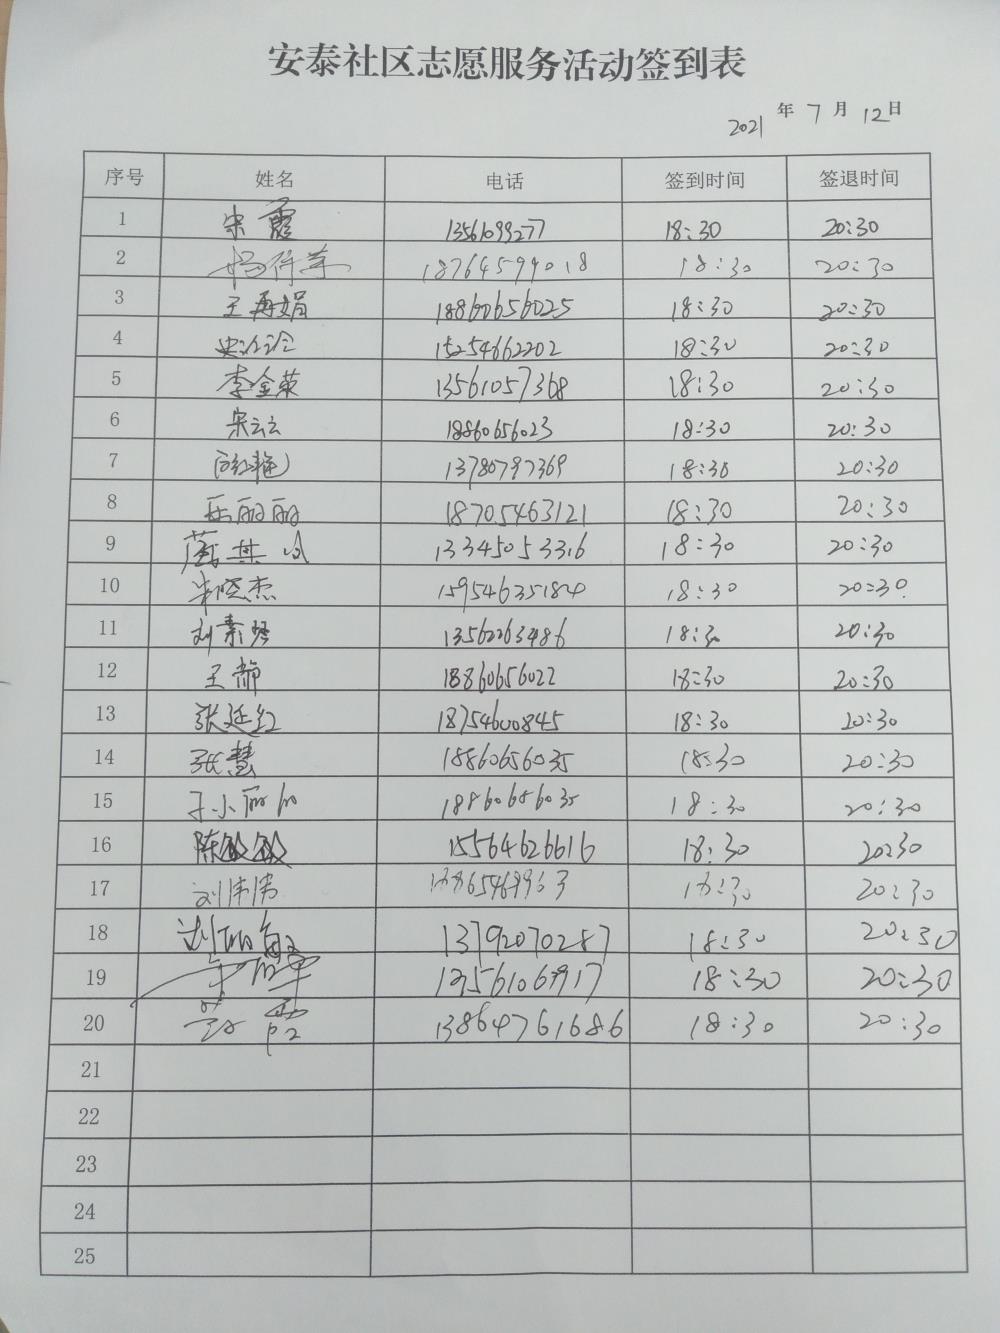 安泰社区志愿服务活动签到表
2021年7月12日
序号 姓名 电话 签到时间 签退时间
1 宋霞 13561099277 18:30 20:30
2 18764599018 18:30 20:30
3 王再娟 18860656025 18:30 20:30
4 15254662202 18:30 20:30
5 李金荣 13561057368 18:30 20:30
6 宋云云 18860656023 18:30 20:30
7 13780797369 18:30 20:30
8 岳丽丽 18705463121 18:30 20:30
9 13345053316 18:30 20:30
10 晓杰 15954635184 18:30 20:30
11 刘素琴 13562263486 18:30 20:30
12 王静 18860656022 18:30 20:30
13 张廷红 18754600845 18:30 20:30
14 张慧 18860656035 18:30 20:30
15 于小丽 18860656035 18:30 20:30
16 陈敏敏 15564626616 18:30 20:30
17 刘伟伟 20:30
18 刘丽 13792070287 18:30 20:30
19 18:30 20:30
20 13864761686 18:30 20:30
21
22
23
24
25